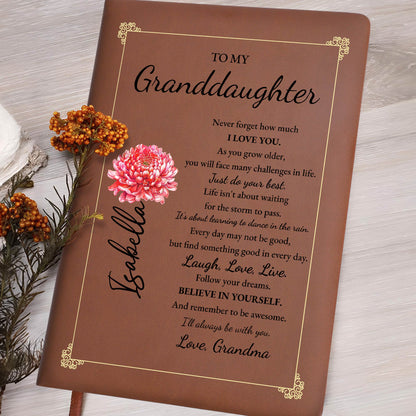 TO MY
Granddaughter
Never forget how much
I LOVE YOU.
As you grow older,
you will face many challenges in life.
Just do your best.
Life isn't about waiting
for the storm to pass.
It's about learning to dance in the rain.
Every day may not be good,
but find something good in every day.
Laugh, Love, Live.
Follow your dreams.
BELIEVE IN YOURSELF.
And remember to be awesome.
I'll always be with you.
Love, Grandma
Isabella